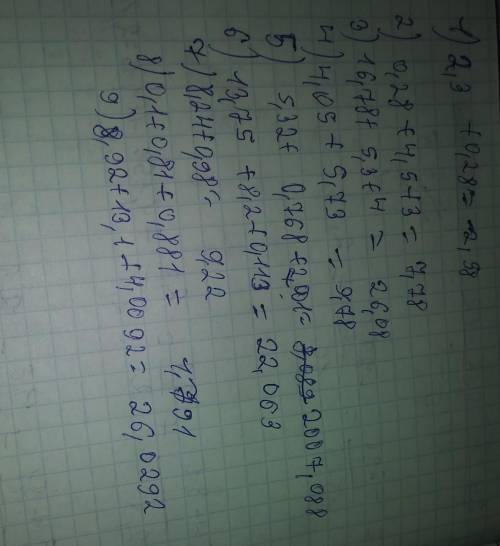 1) 2,3 + 0,28 = 2,58
2) 0,28 + 4,5 + 3 = 7,78
3) 16,78 + 5,3 + 4 = 26,08
4) 4,05 + 5,73 = 9,78
5) 5,32 + 0,768 + 2,001 = 2007,088
6) 13,75 + 8,2 + 0,113 = 22,063
7) 8,24 + 0,98 = 9,22
8) 0,1 + 0,81 + 0,881 = 1,791
9) 8,92 + 13,1 + 4,0092 = 26,0292